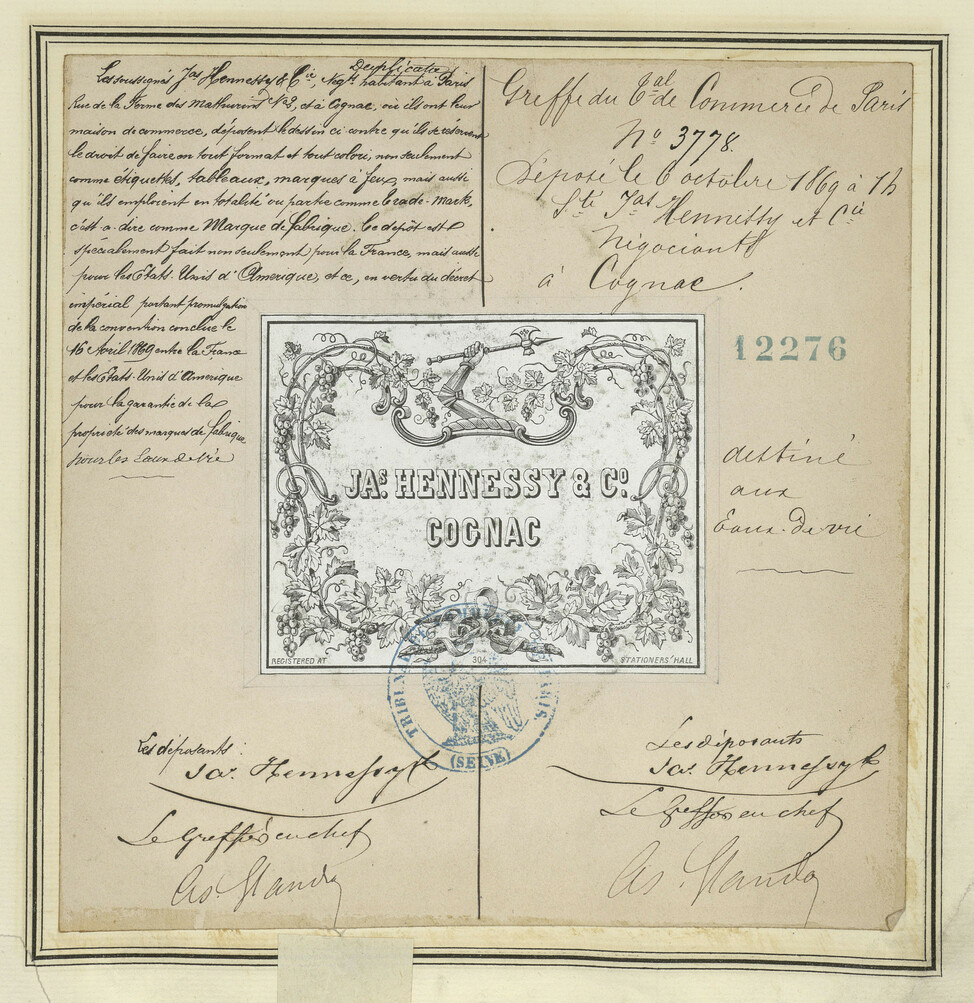 Duplicata
Les soussignés Jas Hennessy & Cie, Negts habitant à Paris
Rue de la Ferme des Mathurins No 2, et à Cognac, où ils ont leur
maison de commerce, déposent le dessin ci contre qu'ils se réservent
le droit de faire en tout format et tout coloris, non seulement
comme étiquettes, tableaux, marques à feu, mais aussi
qu'ils emploient en totalité ou partie comme trade-mark,
c'est-à-dire comme Marque de fabrique. Ce dépôt est
spécialement fait non seulement pour la France, mais aussi
pour les Etats-Unis d'Amérique, et ce, en vertu du décret
impérial portant promulgation
de la convention conclue le
16 Avril 1869 entre la France
et les Etats-Unis d'Amérique
pour la garantie de la
propriété des marques de fabrique
pour les Eaux de vie
Greffe du Tal de Commerce de Paris
No 3778.
Déposé le 6 octobre 1869 à 1h
Sté Jas Hennessy et Cie
Négociants
à Cognac.
12276
destiné
aux
Eaux-de-vie
JAS. HENNESSY & CO.
COGNAC
REGISTERED AT
304
STATIONERS' HALL
TRIBUNAL PARIS.
(SEINE)
Les déposants :
Jas. Hennessy &
Le Greffier en chef
Les déposants
Jas. Hennessy &
Le Greffier en chef